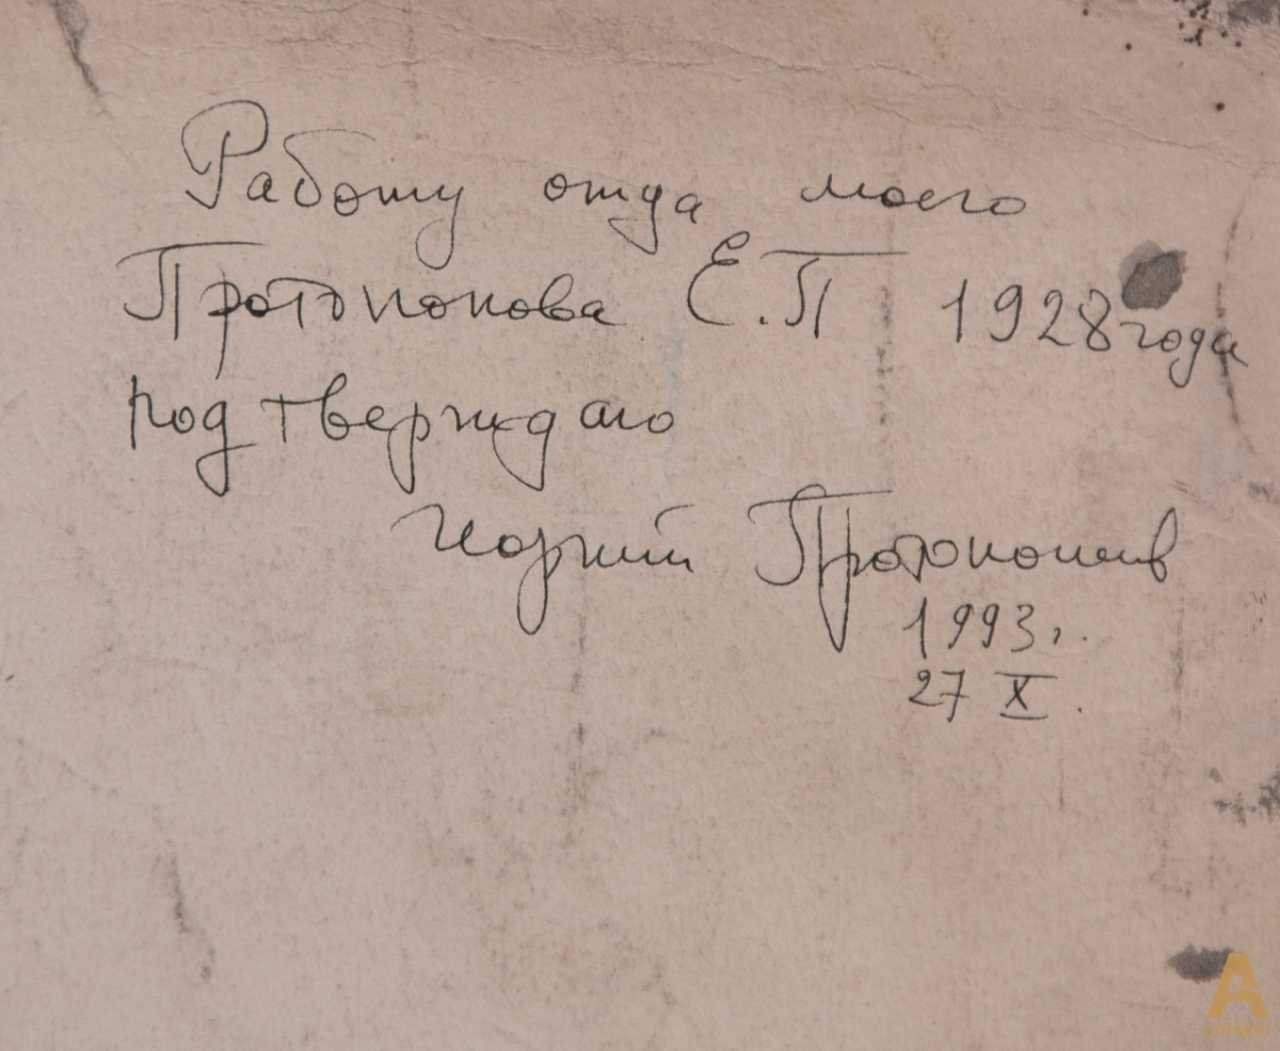 Работу отца моего
Протопопова Е.П 1928 года
подтверждаю
Протопопов
1993г.
27 X.
A